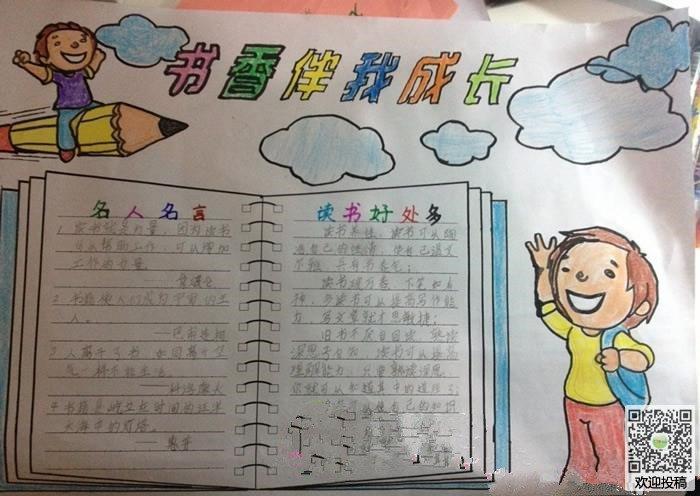 书香伴我成长
名人名言
1 读书就是力量，因为读书
可以帮助工作，可以增加
工作的力量。
2 书籍使人们成为宇宙的主
人。
——巴甫连柯
3 人离开了书，如同离开空
气一样不能生活。
——科洛廖夫
4 书籍是屹立在时间的汪洋
大海中的灯塔。
读书好处多
读书养性，读书可以陶
冶自己的性情，使自己温文
尔雅，具有书卷气；
读书破万卷，下笔如有
神，多读书可以提高写作能
力，写文章就才思敏捷；
旧书不厌百回读，熟读
深思子自知，读书可以提高
理解能力，只要熟读深思，
你就可以知道其中的道理了；
自己的知识
欢迎投稿